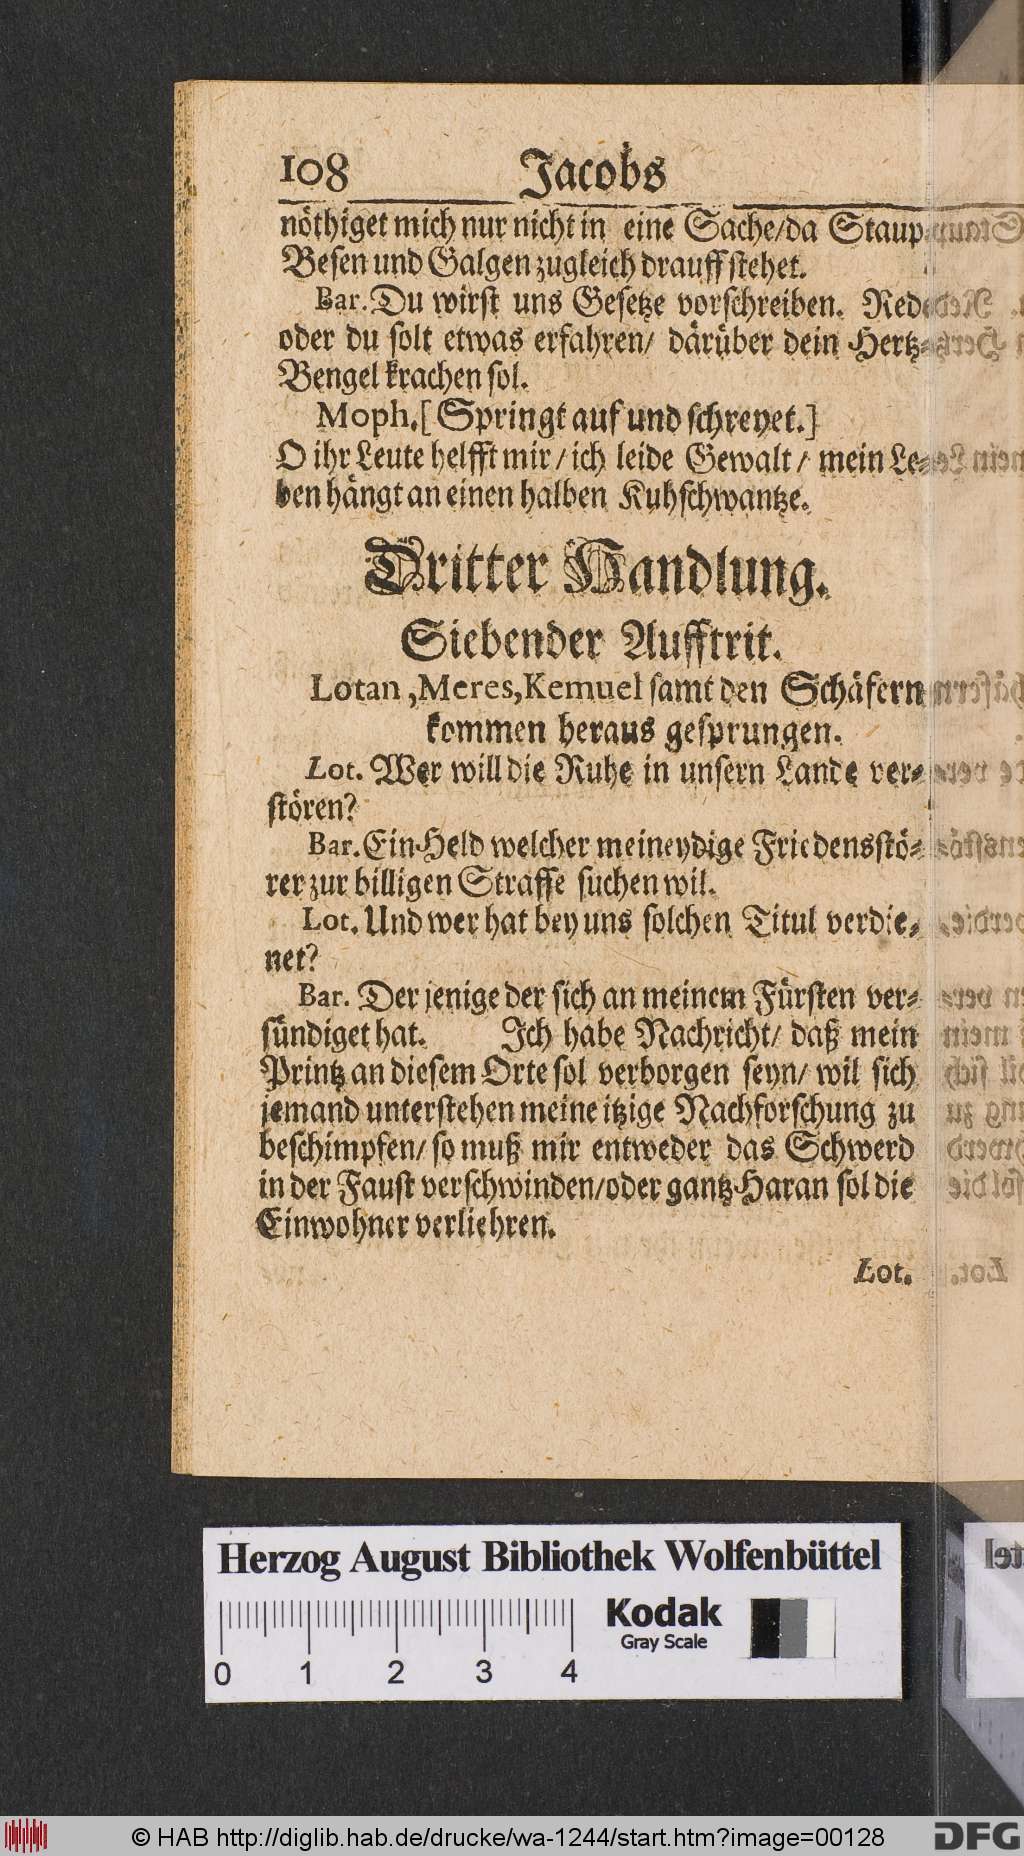 108 Jacobs
nöthiget mich nur nicht in eine Sache/da Staup-
Besen und Galgen zugleich drauff stehet.
Bar. Du wirst uns Gesetze vorschreiben. Rede
oder du solt etwas erfahren/ därüber dein Hertz-
Bengel krachen sol.
Moph. [Springt auf und schreyet.]
O ihr Leute helfft mir/ich leide Gewalt/ mein Le-
ben hängt an einen halben Kuhschwantze.
Dritter Handlung.
Siebender Aufftrit.
Lotan, Meres, Kemuel samt den Schäfern
kommen heraus gesprungen.
Lot. Wer will die Ruhe in unsern Lande ver-
stören?
Bar. Ein Held welcher meineydige Friedensstö-
rer zur billigen Straffe suchen wil.
Lot. Und wer hat bey uns solchen Titul verdie-
net?
Bar. Der jenige der sich an meinem Fürsten ver-
sündiget hat. Ich habe Nachricht/ daß mein
Printz an diesem Orte sol verborgen seyn/ wil sich
jemand unterstehen meine itzige Nachforschung zu
beschimpfen/ so muß mir entweder das Schwerd
in der Faust verschwinden/oder gantz Haran sol die
Einwohner verliehren.
Lot.
Herzog August Bibliothek Wolfenbüttel
Kodak
Gray Scale
0 1 2 3 4
© HAB http://diglib.hab.de/drucke/wa-1244/start.htm?image=00128
DFG